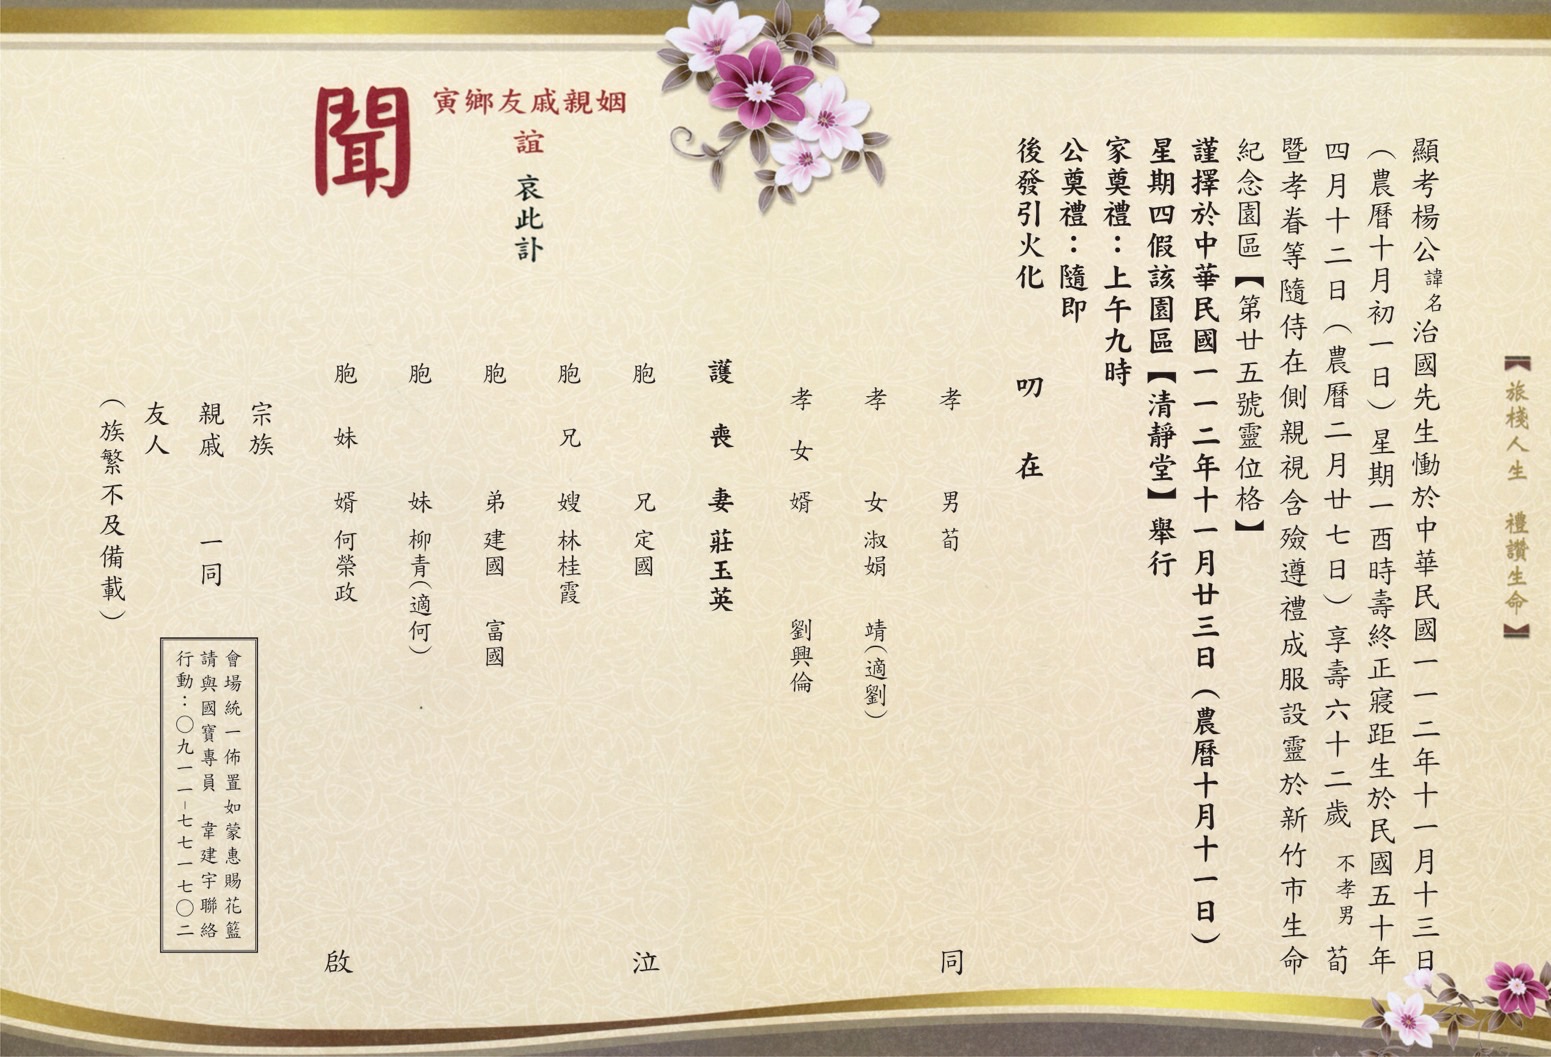 【旅棧人生　禮讚生命】
顯考楊公諱名治國先生慟於中華民國一一二年十一月十三日
（農曆十月初一日）星期一酉時壽終正寢距生於民國五十年
四月十二日（農曆二月廿七日）享壽六十二歲　不孝男　荀
暨孝眷等隨侍在側親視含殮遵禮成服設靈於新竹市生命
紀念園區【第廿五號靈位格】
謹擇於中華民國一一二年十一月廿三日（農曆十月十一日）
星期四假該園區【清靜堂】舉行
家奠禮：上午九時
公奠禮：隨即
後發引火化　叨　在
姻親戚友鄉寅
誼
哀此訃
聞
孝　男　荀
孝　女　淑娟　靖（適劉）
孝女婿　劉興倫
護喪妻　莊玉英
胞　兄　定國
胞兄嫂　林桂霞
胞　弟　建國　富國
胞　妹　柳青（適何）
胞妹婿　何榮政
同　泣　啟
宗族
親戚　一同
友人
（族繁不及備載）
會場統一佈置如蒙惠賜花籃
請與國寶專員　韋建宇聯絡
行動：〇九一一-七七一七〇二